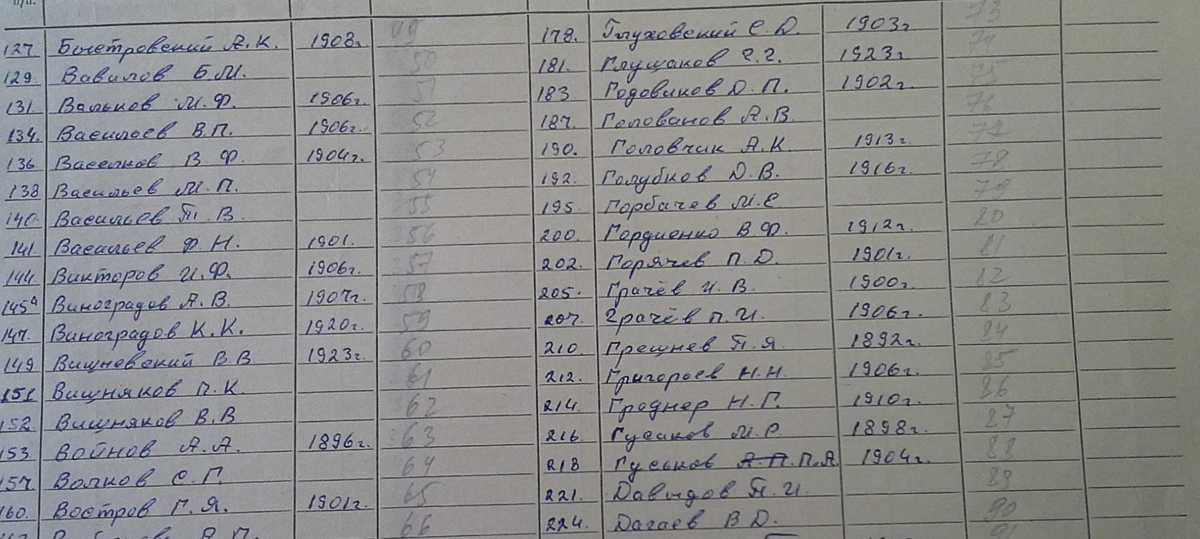 п/п.
127. Быстровский А.К. 1908г. 49
129. Вавилов Б.М. 50
131. Вальков М.Ф. 1906г. 51
134. Васильев В.П. 1906г. 52
136. Васелков В.Ф. 1904г. 53
138 Васильев М.П. 54
140. Васильев П.В. 55
141. Васильев Ф.Н. 1901. 56
144. Викторов И.Ф. 1906г. 57
145а Виноградов А.В. 1907г. 58
147. Виноградов К.К. 1920г. 59
149. Вишневский В.В. 1923г. 60
151 Вишняков П.К. 61
152. Вишняков В.В 62
153. Войнов А.А. 1896г. 63
157. Волков С.Г. 64
160. Востров Г.Я. 1901г. 65
66
178. Глуховский С.Д. 1903г 73
181. Глущаков Г.Г. 1923г 74
183. Годовиков Д.П. 1902г. 75
187. Голованов А.В 76
190. Головчик А.К. 1913г. 77
192. Голубков Д.В. 1916г. 78
195 Горбачев М.Е 79
200. Гордиенко В.Ф. 1912г. 80
202. Горячев П.Д 1901г. 81
205. Грачёв И.В. 1900г. 82
207. Грачёв П.И. 1906г. 83
210. Грешнев П.Я. 1892г. 84
212. Григорьев Н.Н. 1906г. 85
214. Гроднер Н.Г. 1910г. 86
216. Гусаков М.Р. 1898г. 87
218 Гуськов А.П. П.А. 1904г. 88
221. Давыдов П.И. 89
224. Дагаев В.Д. 90
91